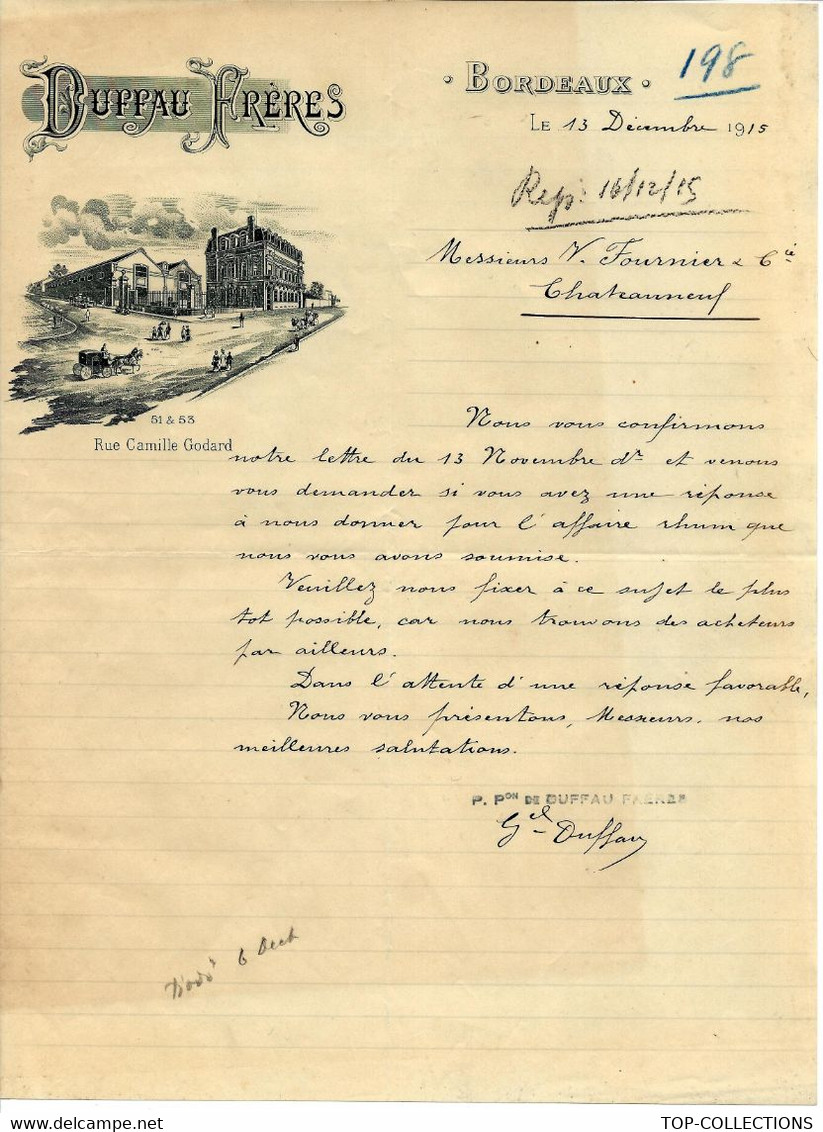 DUFFAU FRÈRES
· BORDEAUX ·
198
LE 13 Décembre 1915
Rep: 16/12/15
Messieurs V. Fournier & Cie
Chateauneuf
51 & 53
Rue Camille Godard
Nous vous confirmons
notre lettre du 13 Novembre dr et venons
vous demander si vous avez une réponse
à nous donner pour l'affaire rhum que
nous vous avons soumise.
Veuillez nous fixer à ce sujet le plus
tot possible, car nous trouvons des acheteurs
par ailleurs.
Dans l'attente d'une réponse favorable,
Nous vous présentons, Messieurs, nos
meilleures salutations.
P. PON DE DUFFAU FRÈRES
Gel Duffau
6
TOP-COLLECTIONS